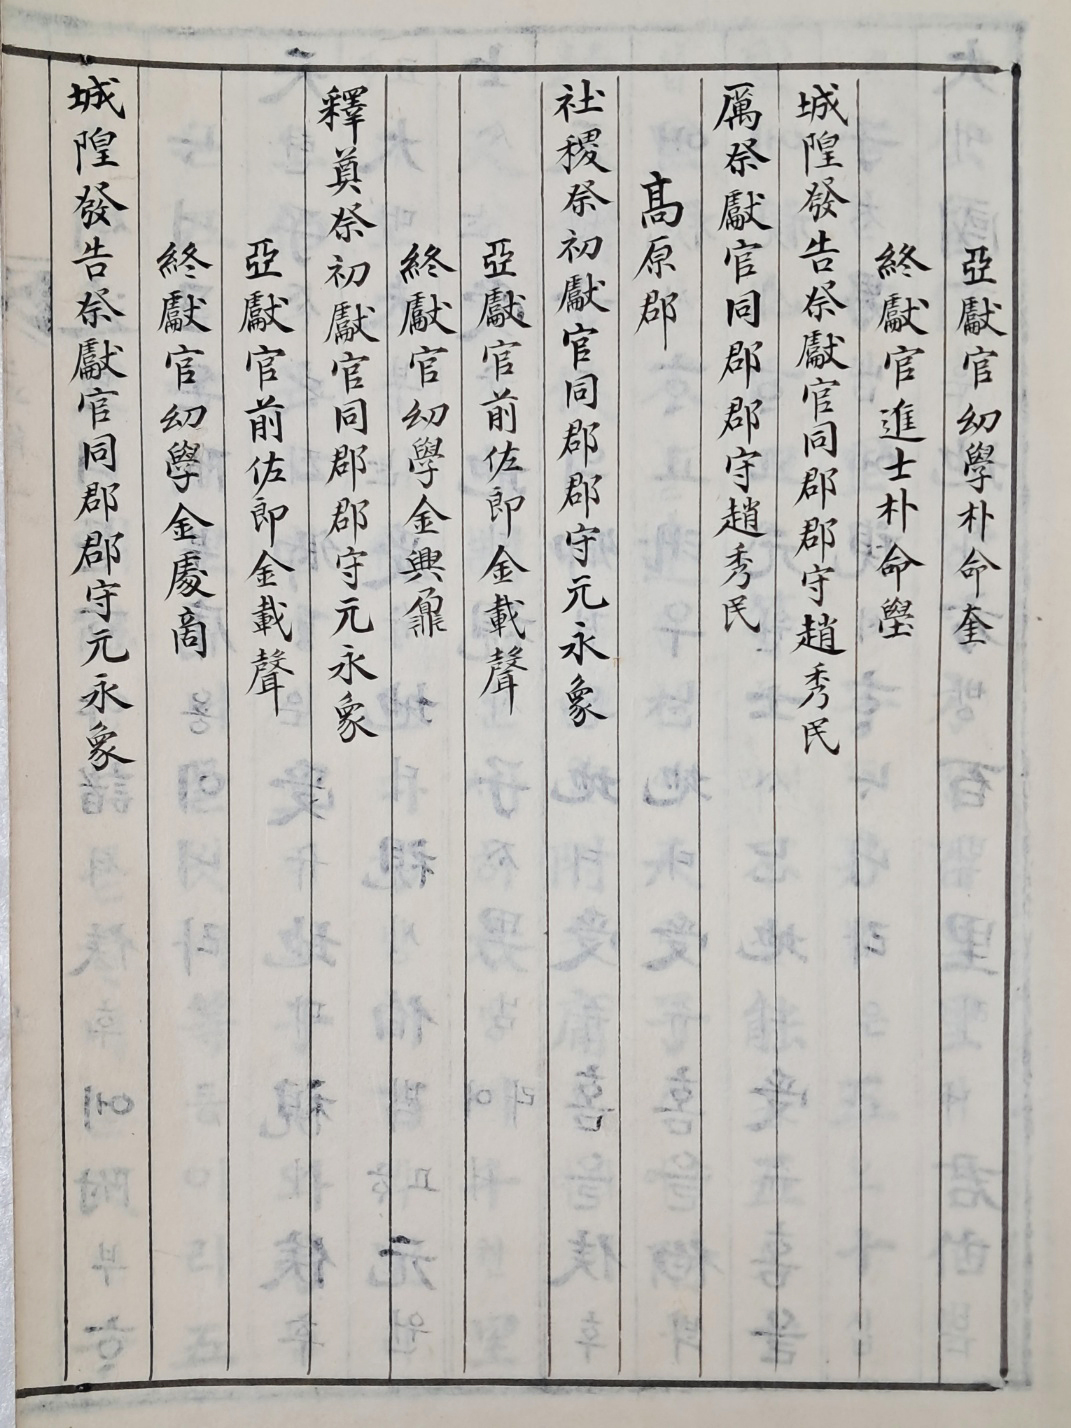 亞獻官幼學朴命奎
終獻官進士朴命壆
城隍發告祭獻官同郡郡守趙秀民
厲祭獻官同郡郡守趙秀民
高原郡
社稷祭初獻官同郡郡守元永象
亞獻官前佐郎金載聲
終獻官幼學金興鼐
釋奠祭初獻官同郡郡守元永象
亞獻官前佐郎金載聲
終獻官幼學金處商
城隍發告祭獻官同郡郡守元永象